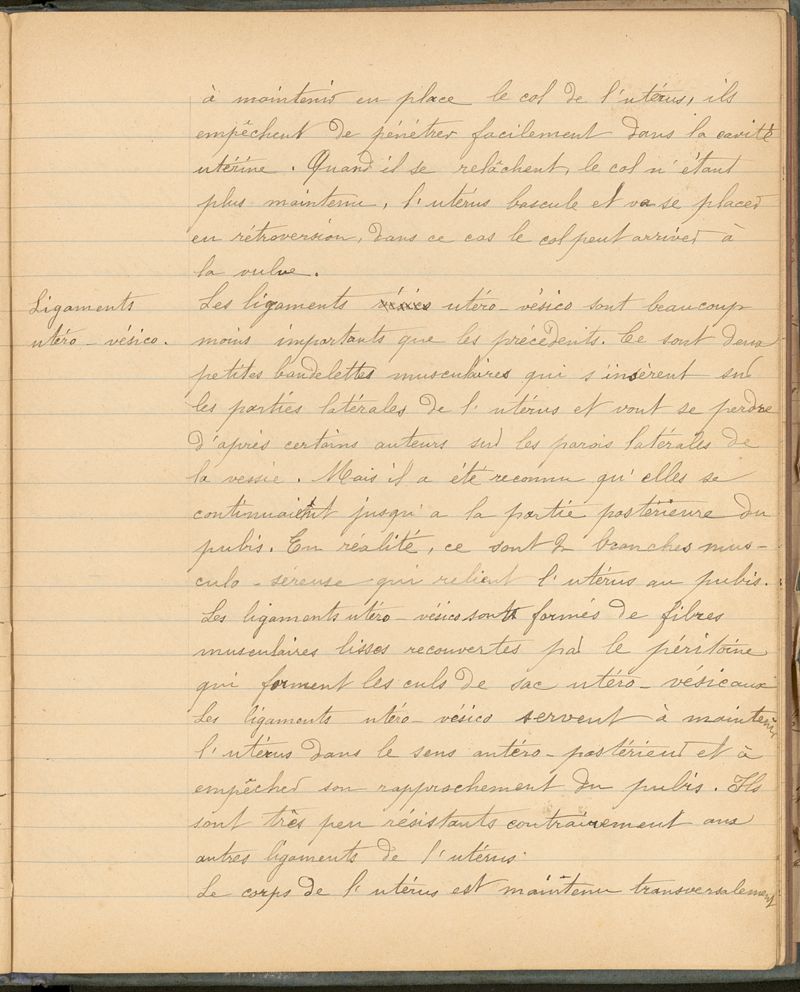 à maintenir en place le col de l'utérus, ils
empêchent de pénétrer facilement dans la cavité
utérine. Quand il se relâchent, le col n'étant
plus maintenu, l'utérus bascule et va se placer
en rétroversion, dans ce cas le col peut arriver à
la vulve.
Ligaments
utéro-vésico.
Les ligaments utéro-vésico sont beaucoup
moins importants que les précédents. Ce sont deux
petites bandelettes musculaires qui s'insèrent sur
les parties latérales de l'utérus et vont se perdre
d'après certains auteurs sur les parois latérales de
la vessie. Mais il a été reconnu qu'elles se
continuaient jusqu'a la partie postérieure du
pubis. En réalité, ce sont 2 branches mus-
culo-séreuse qui relient l'utérus au pubis.
Les ligaments utéro-vésico sont formés de fibres
musculaires lisses recouvertes par le péritoine
qui forment les culs de sac utéro-vésicaux
Les ligaments utéro-vésico servent à maintenir
l'utérus dans le sens antéro-postérieur et à
empêcher son rapprochement du pubis. Ils
sont très peu résistants contrairement aux
autres ligaments de l'utérus.
Le corps de l'utérus est maintenu transversalement